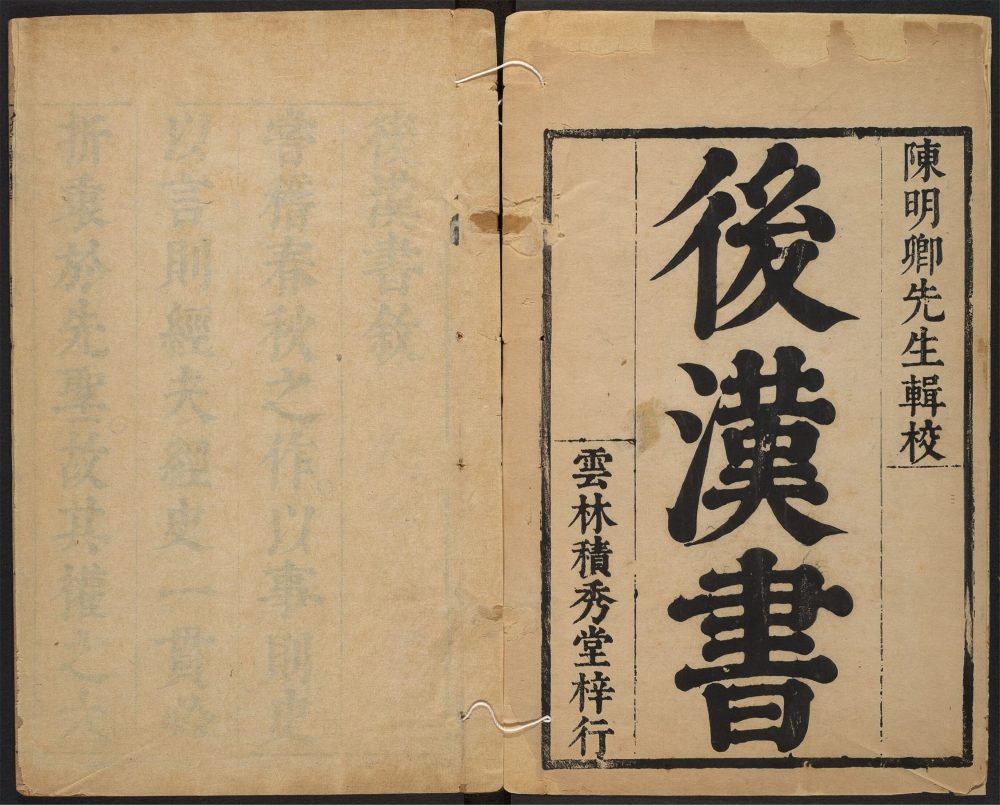 陳明卿先生輯校
後漢書
雲林積秀堂梓行
後漢書敘
嘗稽春秋之作以事則史
以言則經夫經史一貫
折衷於先聖故其權之大